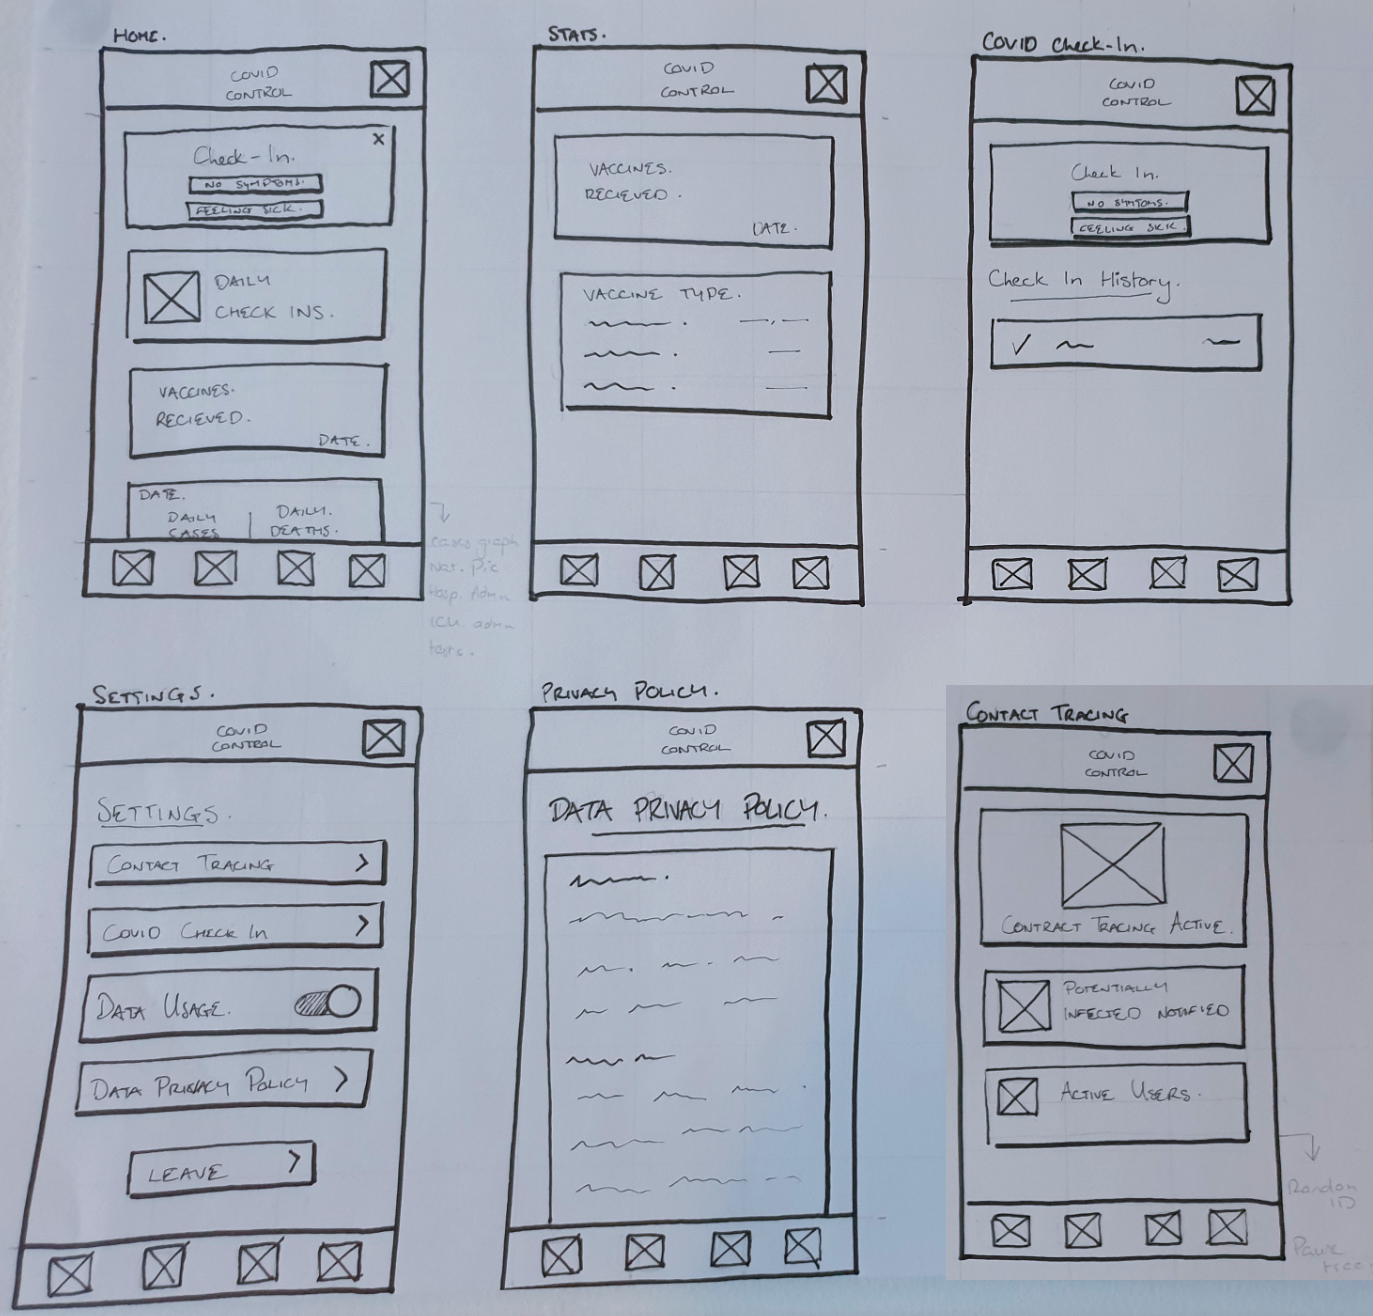 HOME.
COVID
CONTROL
Check-In.
x
NO SYMPTOMS.
FEELING SICK.
DAILY
CHECK INS.
VACCINES.
RECIEVED.
DATE.
DATE.
DAILY
CASES
DAILY.
DEATHS.
cases graph
Nat. Pic
Hosp. Admn
ICU. admn
tests.
STATS.
COVID
CONTROL
VACCINES.
RECIEVED.
DATE.
VACCINE TYPE.
COVID Check-In.
COVID
CONTROL
Check In.
NO SYMTOMS.
FEELING SICK.
Check In History.
SETTINGS.
COVID
CONTROL
SETTINGS.
CONTACT TRACING >
COVID CHECK IN >
DATA USAGE.
DATA PRIVACY POLICY >
LEAVE >
PRIVACY POLICY.
COVID
CONTROL
DATA PRIVACY POLICY.
CONTACT TRACING
COVID
CONTROL
CONTRACT TRACING ACTIVE.
POTENTIALLY
INFECTED NOTIFIED
ACTIVE USERS.
Random
ID